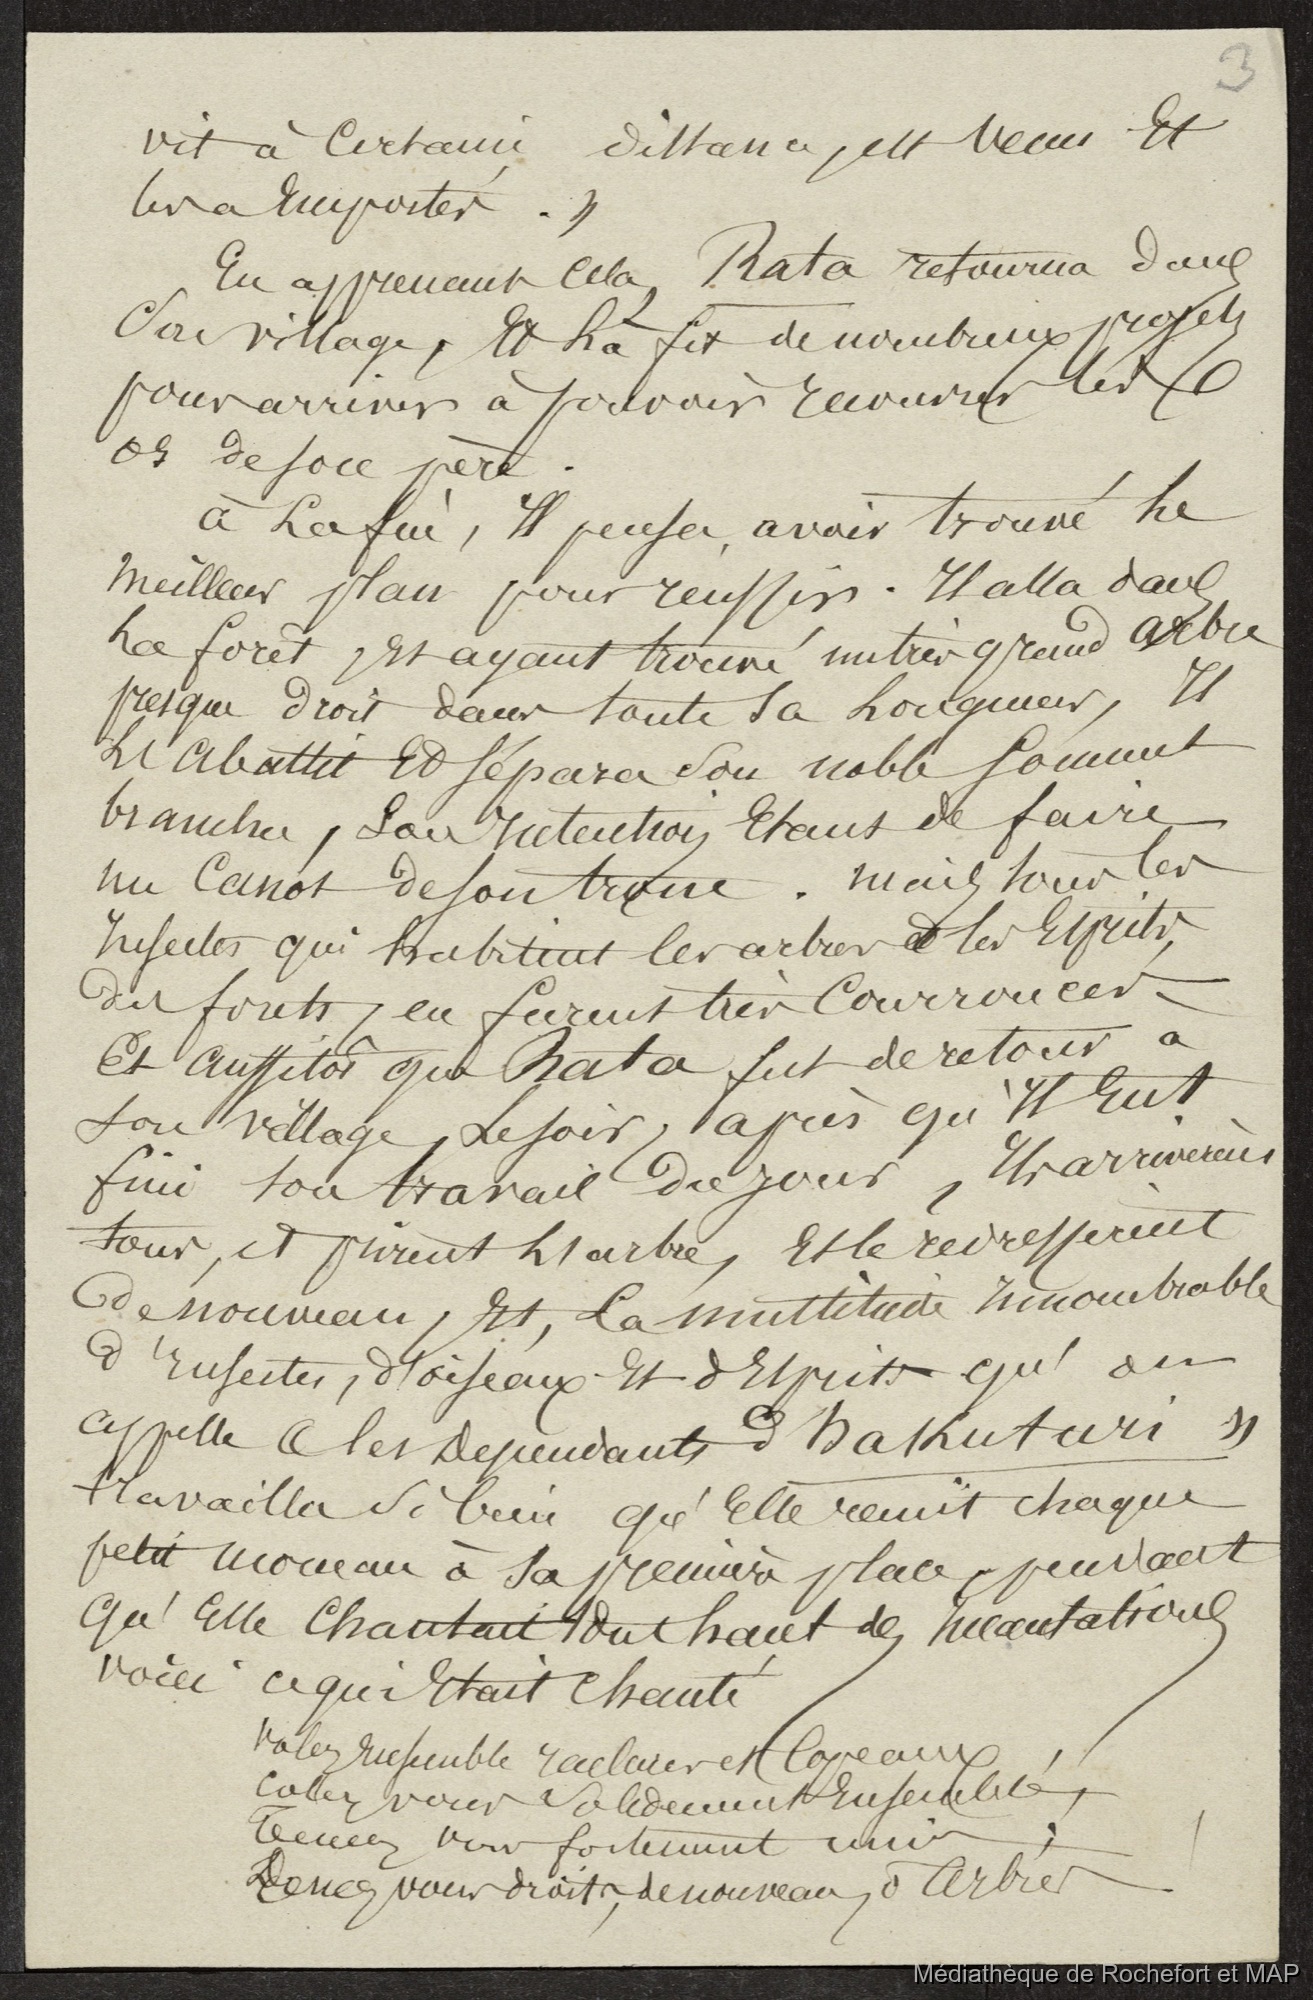 3
vit à certaine distance, est venu Et
les a Emportés . »
En apprenant cela, Rata retourna dans
Son village, Et là fit de nombreux projets
pour arriver à pouvoir recouvrer les
os de son père .
à La fin, Il pensa avoir trouvé le
meilleur plan pour réussir . Il alla dans
La forêt, Et ayant trouvé un très grand arbre
presque droit dans toute sa Longueur, Il
L'abattit Et sépara son noble sommet
branchu, Son Intention Etant de faire
un Canot de son tronc . mais tous les
Insectes qui habitent les arbres et les Esprits
des forêts, en furent très Courroucés
Et aussitôt que Rata fut de retour à
son village, Le soir, après qu'Il Eut
fini son travail du jour, Ils arrivèrent
tous, et prirent L'arbre, Et le redressèrent
de nouveau, Et, La multitude Innombrable
d'Insectes, d'oiseaux Et d'Esprits qu'on
appelle « les Dependants d'Hakuturi »
travailla si bien qu'Elle remit chaque
petit morceau à sa première place, pendant
qu'Elle Chantait tout haut des Incantations
voici ce qui Etait Chanté
volez Ensemble raclures et Copeaux,
collez vous Solidement Ensemble,
Tenez vous fortement unis ;
Tenez vous droits, de nouveau, ô Arbre
Médiathèque de Rochefort et MAP